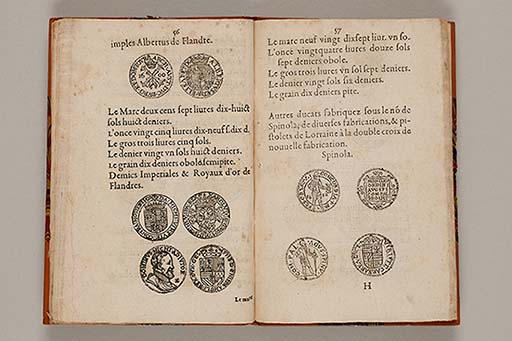 56
imples Albertus de Flandre.
Le Marc deux cens sept liures dix-huict
sols huict deniers.
L'once vingt cinq liures dix-neuf s. dix d.
Le gros trois liures cinq sols.
Le denier vingt vn sols huict deniers.
Le grain dix deniers obole semipite.
Demies Imperiales & Royaux d'or de
Flandres.
Le marc
57
Le marc neuf vingt dixsept liur. vn so.
L'once vingtquatre liures douze sols
sept deniers obole.
Le gros trois liures vn sol sept deniers.
Le denier vingt sols six deniers.
Le grain dix deniers pite.
Autres ducats fabriquez sous le nõ de
Spinola, de diuerses fabrications, & pi-
stolets de Lorraine à la double croix de
nouuelle fabrication.
Spinola.
H